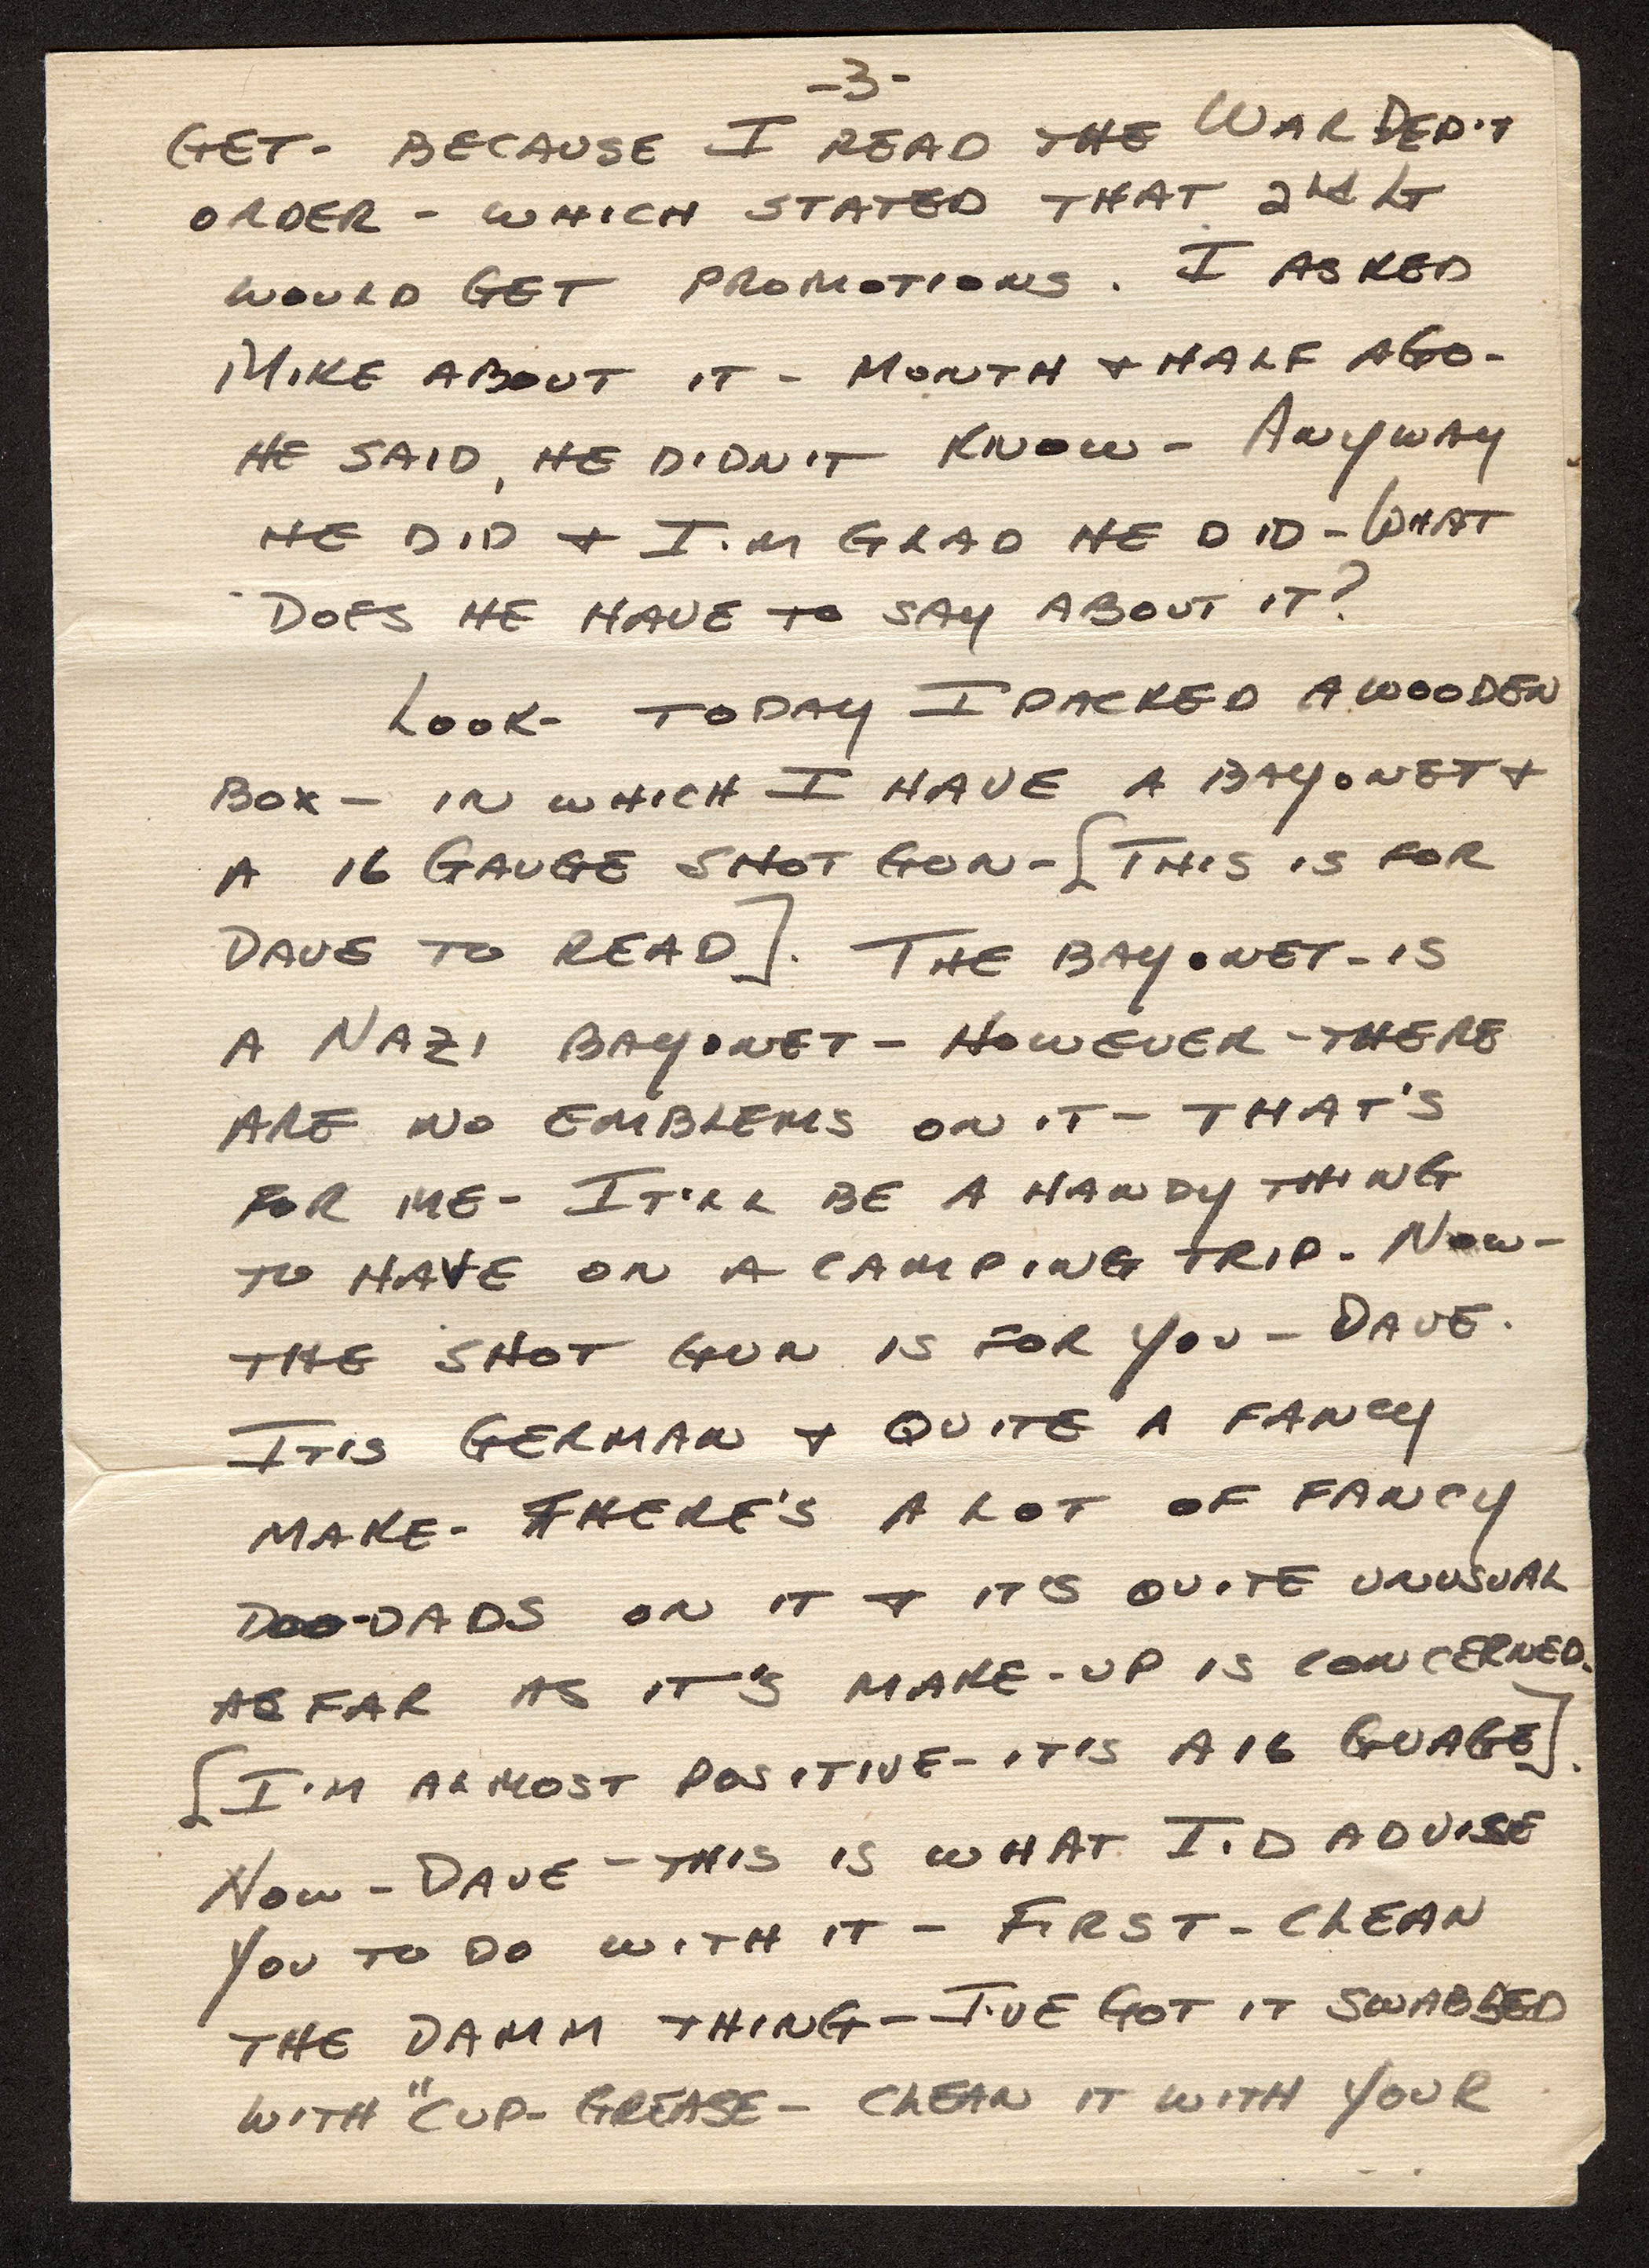 -3-
GET- BECAUSE I READ THE WAR DEP'T
ORDER - WHICH STATED THAT 2nd LT
WOULD GET PROMOTIONS. I ASKED
MIKE ABOUT IT - MONTH + HALF AGO-
HE SAID, HE DIDN'T KNOW - ANYWAY
HE DID + I'M GLAD HE DID - WHAT
DOES HE HAVE TO SAY ABOUT IT?
LOOK- TODAY I PACKED A WOODEN
BOX - IN WHICH I HAVE A BAYONET +
A 16 GAUGE SHOT GUN - [THIS IS FOR
DAVE TO READ]. THE BAYONET - IS
A NAZI BAYONET - HOWEVER - THERE
ARE NO EMBLEMS ON IT - THAT'S
FOR ME - IT'LL BE A HANDY THING
TO HAVE ON A CAMPING TRIP. NOW -
THE SHOT GUN IS FOR YOU - DAVE.
IT IS GERMAN + QUITE A FANCY
MAKE - THERE'S A LOT OF FANCY
DOO-DADS ON IT + IT'S QUITE UNUSUAL
AS FAR AS IT'S MAKE-UP IS CONCERNED.
[I'M ALMOST POSITIVE - IT IS A 16 GUAGE].
NOW - DAVE - THIS IS WHAT I'D ADVISE
YOU TO DO WITH IT - FIRST - CLEAN
THE DAMM THING - I'VE GOT IT SWABBED
WITH "CUP- GREASE - CLEAN IT WITH YOUR